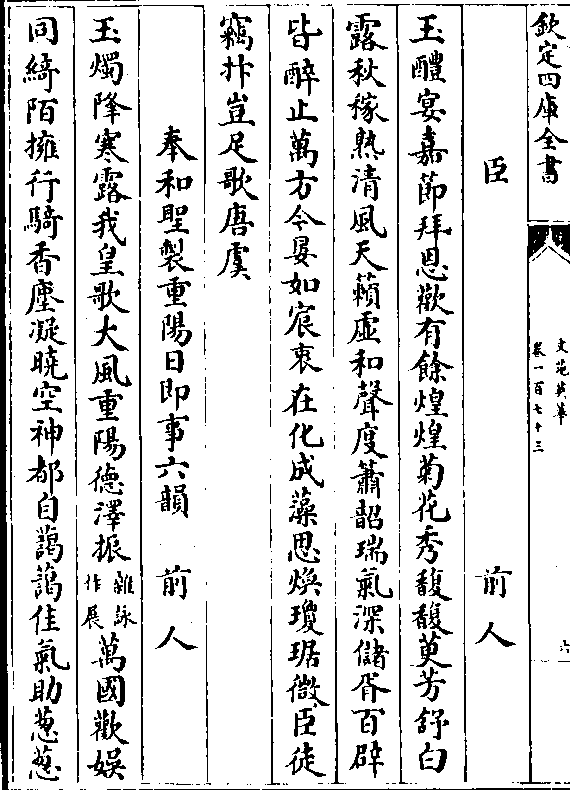 欽定四庫全書
文苑英華
卷一百七十三
六
臣　前人
玉醴宴嘉節拜恩歡有餘煌煌菊花秀馥馥萸芳舒白
露秋稼熟清風天籟虛和聲度簫韶瑞氣深儲胥百辟
皆醉止萬方今晏如宸衷在化成藻思煥瓊琚微臣徒
竊抃豈足歌唐虞
奉和聖製重陽日即事六韻　前人
玉燭降寒露我皇歌大風重陽德澤振雜詠作展萬國歡娛
同綺陌擁行騎香塵凝曉空神都自藹藹佳氣助葱葱